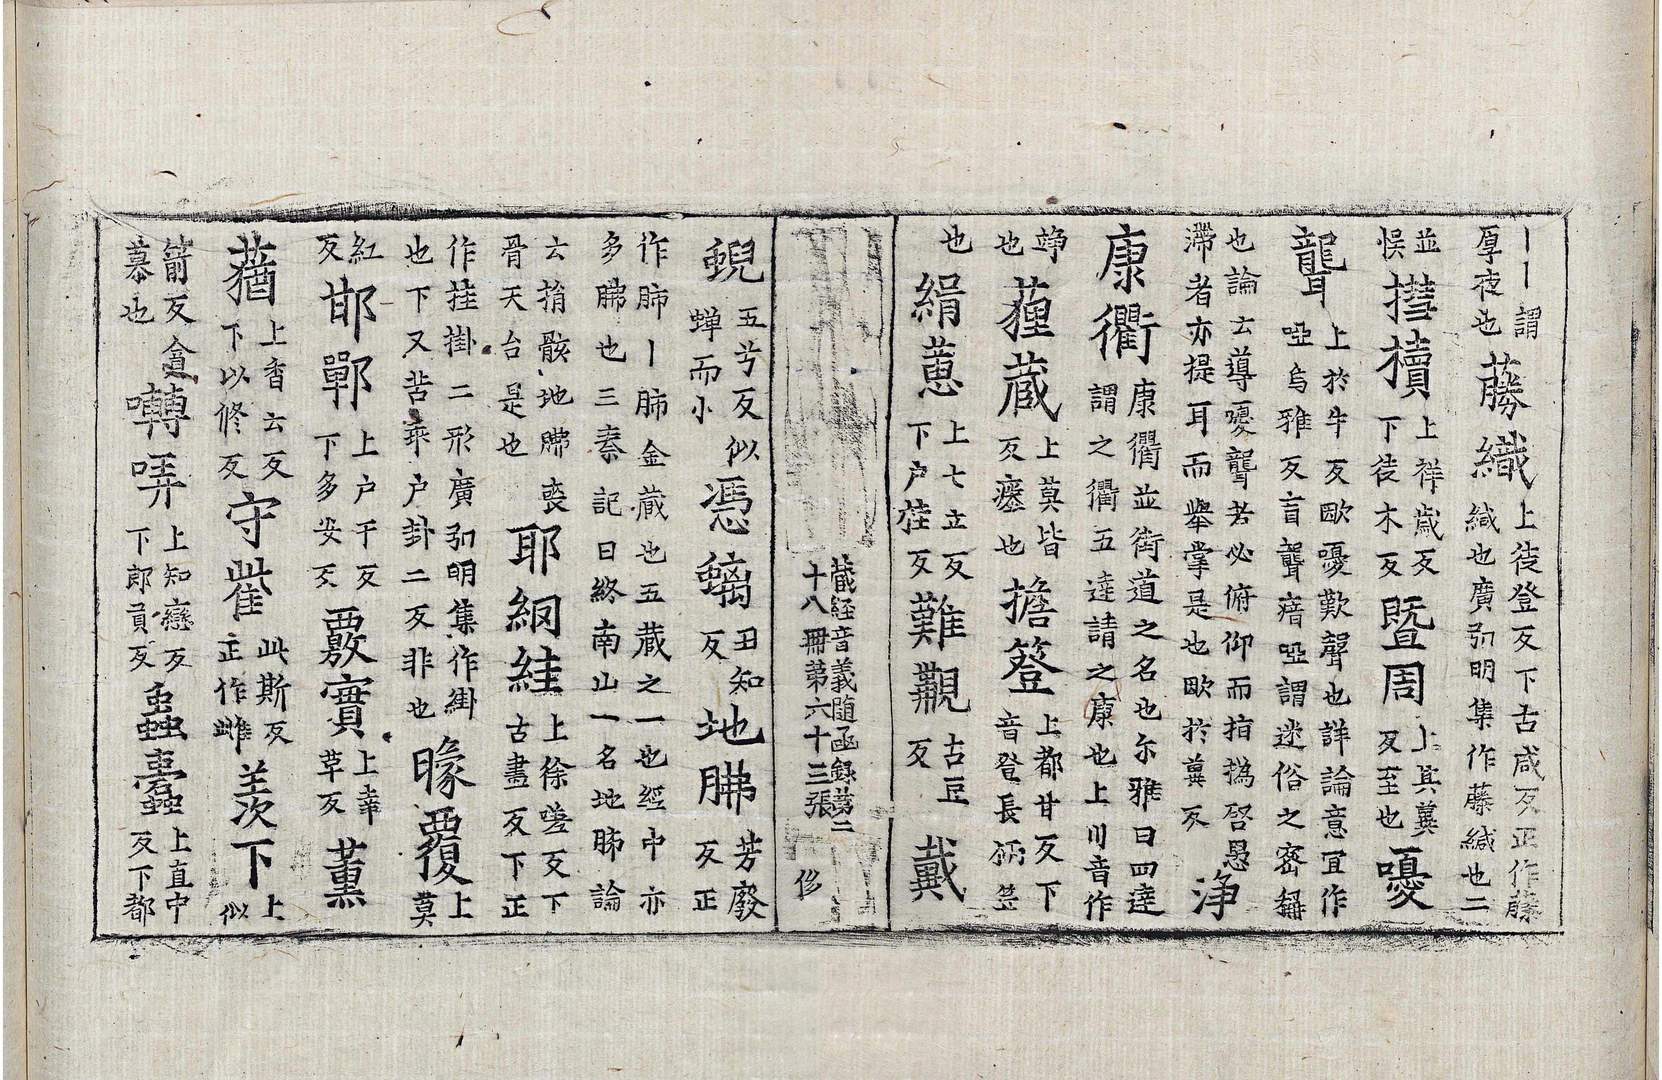 丨丨謂厚夜也藤織上徒登反下古咸反正作藤緘也廣弘明集作藤緘也二
並悞櫝上祥歲反下徒木反暨周上其冀反至也嚘
聾上於牛反歐嚘歎聲也詳論意冝作啞烏雅反盲聾瘖啞謂迷俗之密稱
也論云導嚘聾者必俯仰而指撝啓愚滯者亦提耳而舉掌是也歐於冀反淨
康衢康衢並街道之名也尔雅曰四達謂之衢五達請之康也上川音作
竫也薶蔵上莫皆反瘞也擔簦上都甘反下音登長柄笠
也緝蕙上七立反下户桂反難覯古豆反戴
蔵経音義随函録苐二十八冊第六十三張 侈
蜺五兮反似蟬而小憑螭丑知反地胏芳廢反正
作肺丨肺金蔵也五蔵之一也經中亦多胏也三秦記曰終南山一名地肺論
云捎骸地胏喪骨天台是也耶絅絓上徐嗟反下古畫反下正
作挂掛二形廣弘明集作絓也下又苦乖户卦二反非也曚覆上莫
紅反邯鄲上户干反下多安反覈實上幸草反薫
蕕上香云反下以修反守雌此斯反正作雌羨次下上似
箭反貪慕也囀哢上知戀反下郎貢反蟲蠹上直中反下都